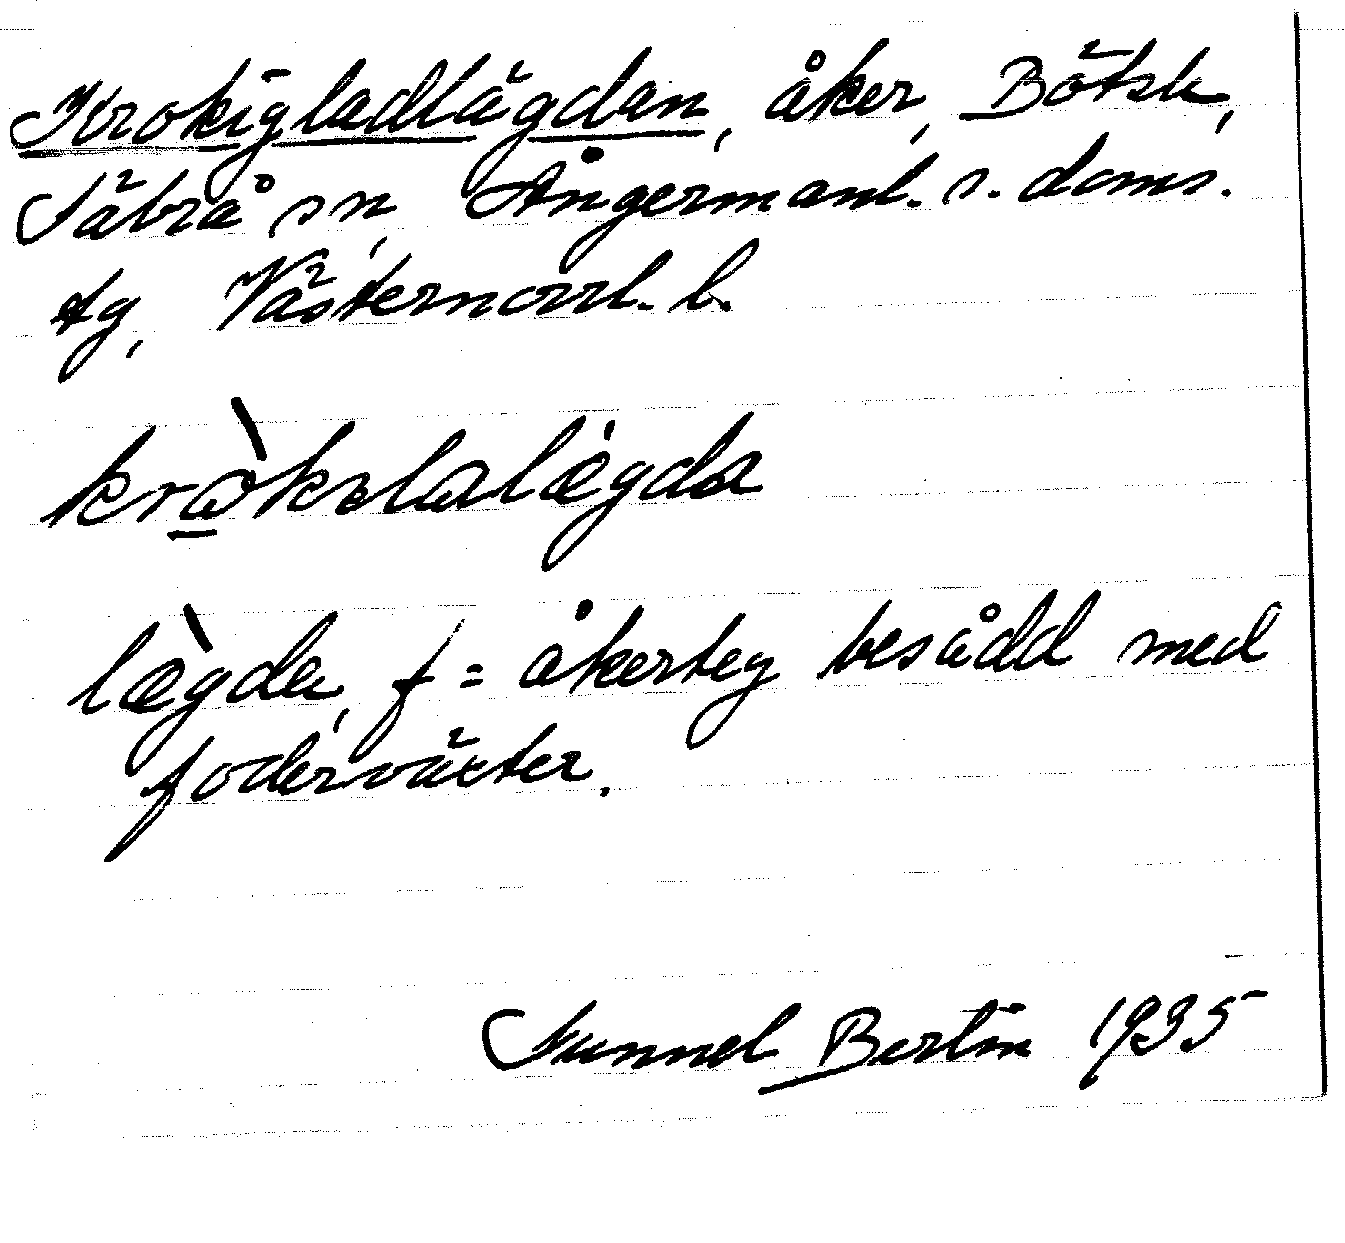 Krokigladlägdan, åker, Bötsle,
Säbrå sn, Ångermanl. s. doms.
tg, Västernorrl. l.
krò̱kslalægda
læ̀gda, f = åkerteg besådd med
foderväxter.
Gunnel Bertin 1935